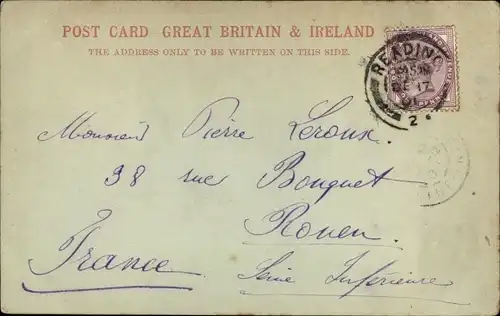 POST CARD GREAT BRITAIN & IRELAND
THE ADDRESS ONLY TO BE WRITTEN ON THIS SIDE.
READING
DE 17
01
2
Monsieur Pierre Leroux
38 rue Bouquet
Rouen.
France Seine Inférieure